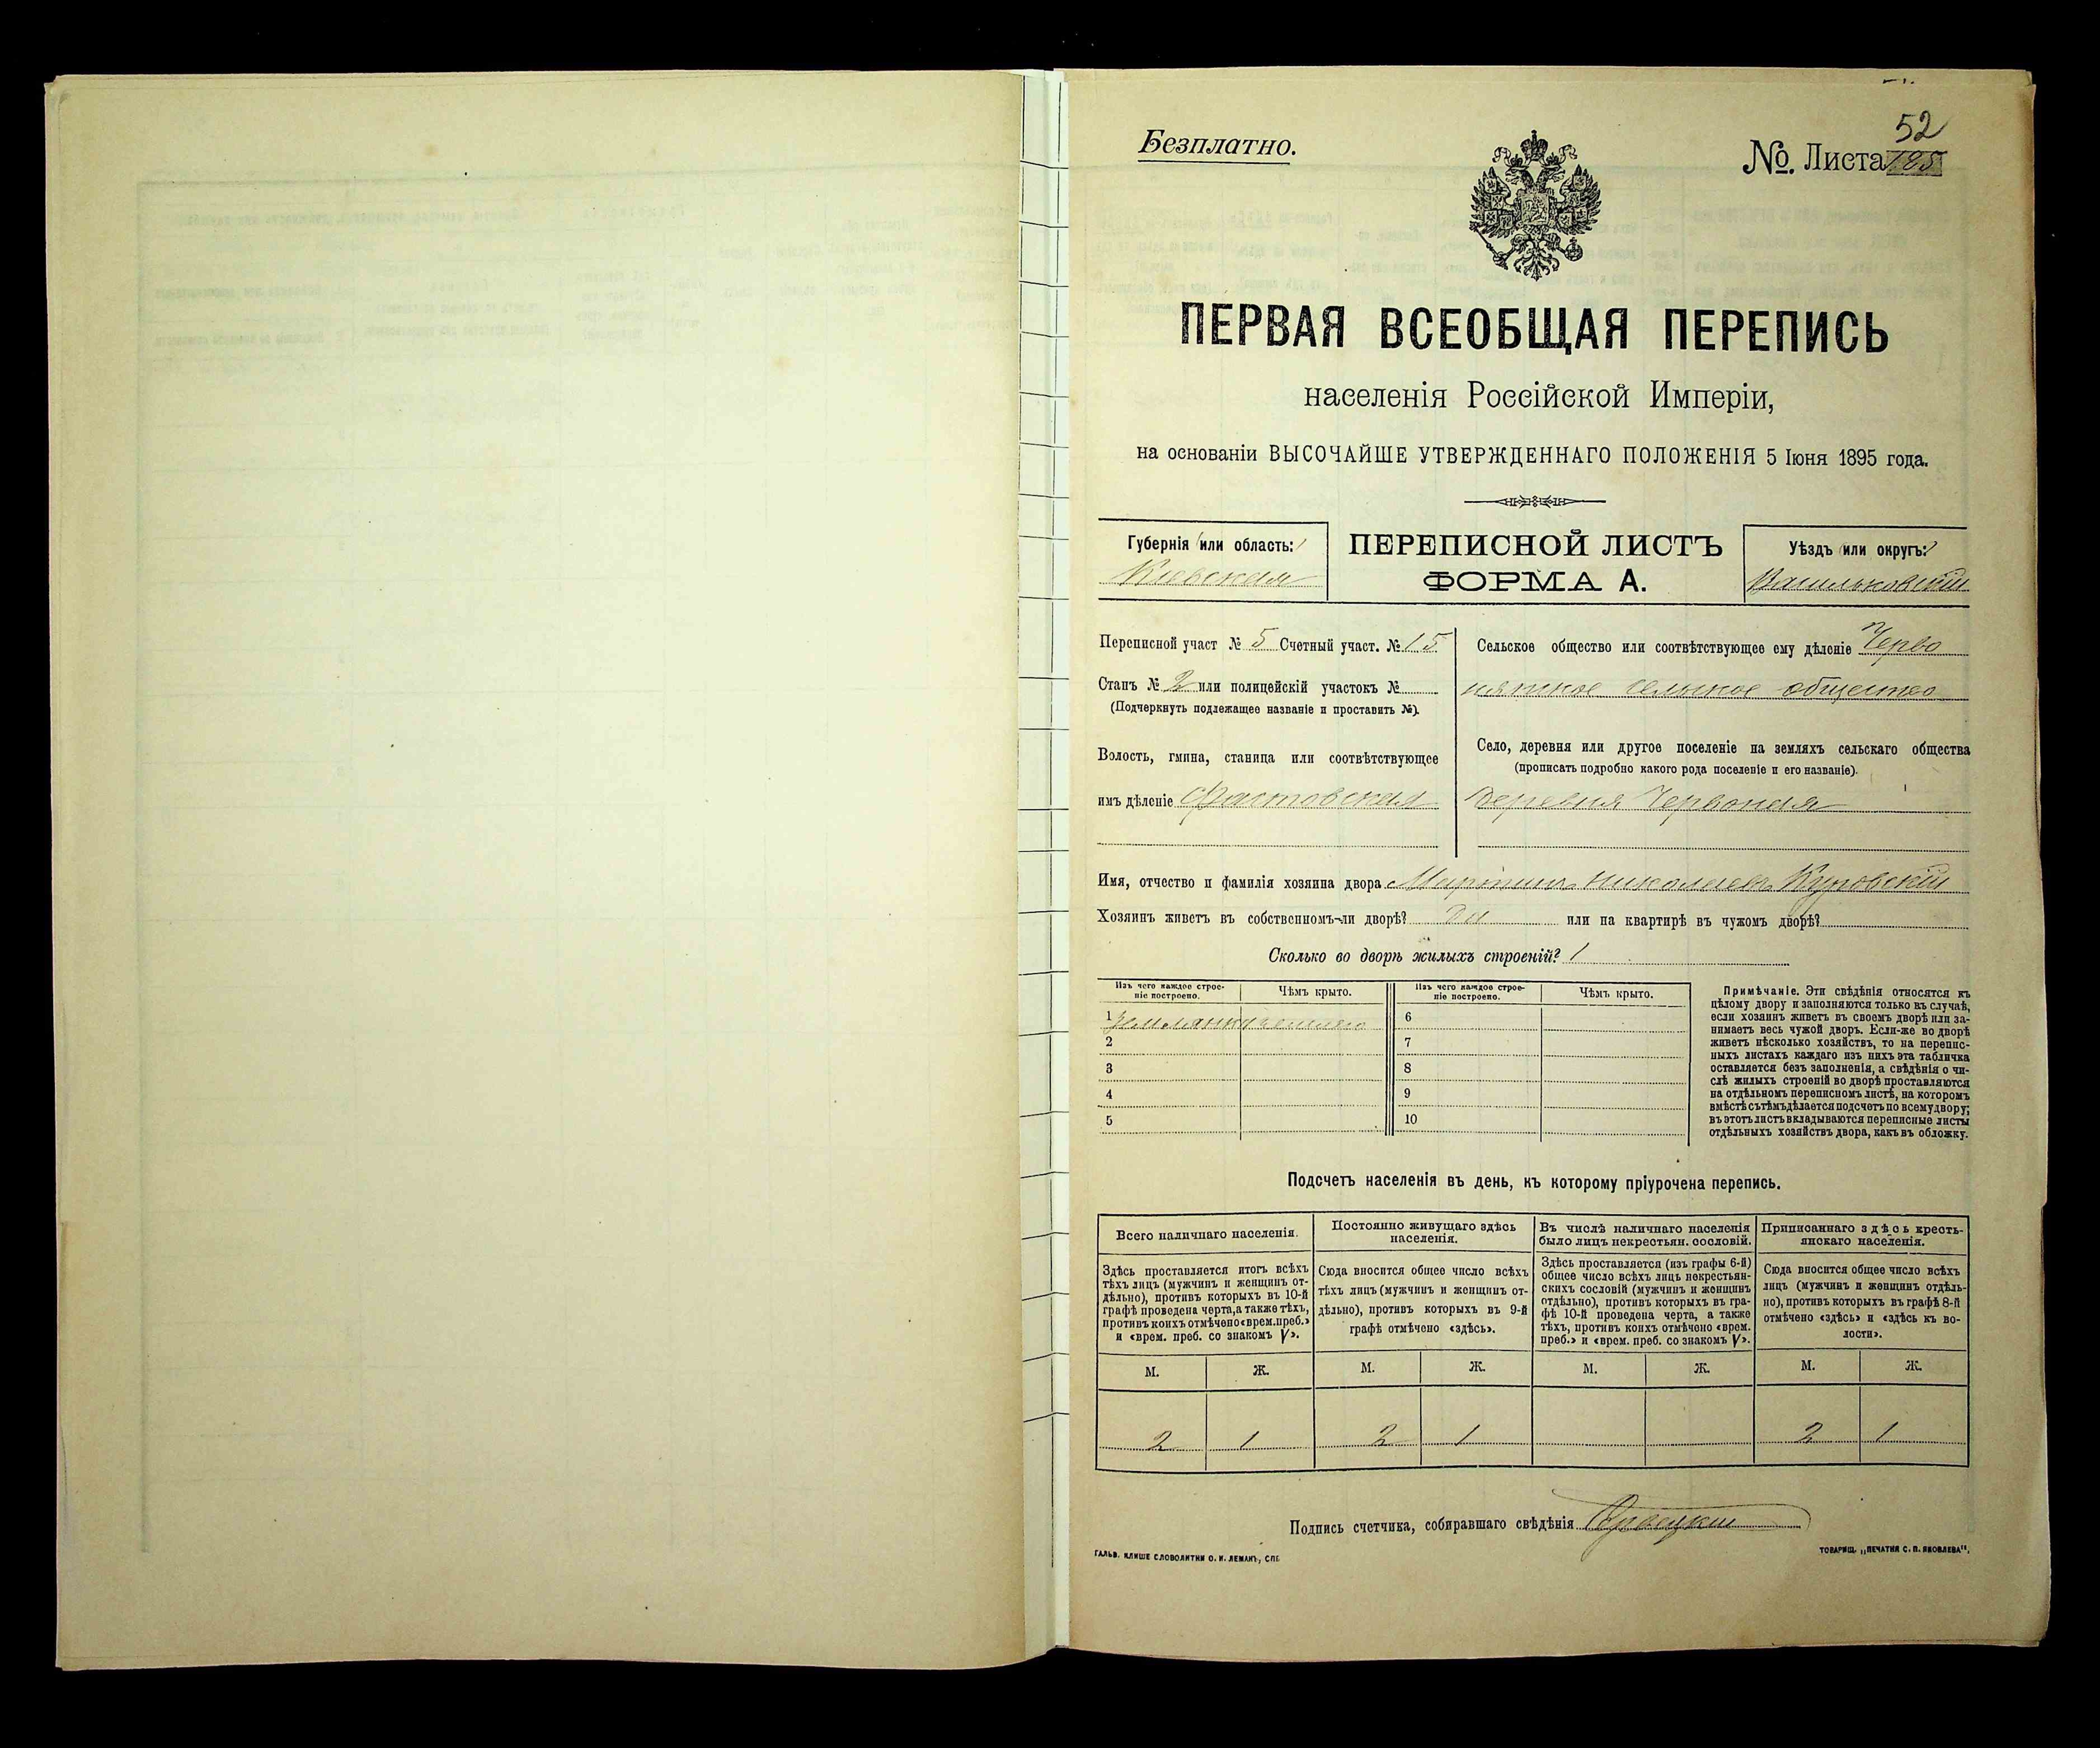 52
Безплатно.
№. Листа 125
ПЕРВАЯ ВСЕОБЩАЯ ПЕРЕПИСЬ
населенія Россійской Имперіи,
на основаніи ВЫСОЧАЙШЕ УТВЕРЖДЕННАГО ПОЛОЖЕНІЯ 5 Іюня 1895 года.
Губернія (или область:)
Кіевская
ПЕРЕПИСНОЙ ЛИСТЪ
ФОРМА А.
Уѣздъ (или округъ:)
Васильковскій
Переписной участ № 5 Счетный участ. № 15
Станъ № 2 или полицейскій участокъ №
(Подчеркнуть подлежащее названіе и проставить №).
Волость, гмина, станица или соотвѣтствующее
имъ дѣленіе Фастовская
Сельское общество или соотвѣтствующее ему дѣленіе Черво
нянское сельское общество
Село, деревня или другое поселеніе на земляхъ сельскаго общества
(прописать подробно какого рода поселеніе и его названіе).
деревня Червоная
Имя, отчество и фамилія хозяина двора Мартинъ Николаевъ Куровскій
Хозяинъ живетъ въ собственномъ-ли дворѣ? да или на квартирѣ въ чужомъ дворѣ?
Сколько во дворѣ жилыхъ строеній? 1
Изъ чего каждое строе-
ніе построено.
Чѣмъ крыто.
Изъ чего каждое строе-
ніе построено.
Чѣмъ крыто.
1 землянка землею 6
2 7
3 8
4 9
5 10
Примѣчаніе. Эти свѣдѣнія относятся къ
цѣлому двору и заполняются только въ случаѣ,
если хозяинъ живетъ въ своемъ дворѣ или за-
нимаетъ весь чужой дворъ. Если-же во дворѣ
живетъ нѣсколько хозяйствъ, то на перепис-
ныхъ листахъ каждаго изъ нихъ эта табличка
оставляется безъ заполненія, а свѣдѣнія о чи-
слѣ жилыхъ строеній во дворѣ проставляются
на отдѣльномъ переписномъ листѣ, на которомъ
вмѣстѣ съ тѣмъ дѣлается подсчетъ по всему двору;
въ этотъ листъ вкладываются переписные листы
отдѣльныхъ хозяйствъ двора, какъ въ обложку.
Подсчетъ населенія въ день, къ которому пріурочена перепись.
Всего наличнаго населенія.
Здѣсь проставляется итогъ всѣхъ
тѣхъ лицъ (мужчинъ и женщинъ от-
дѣльно), противъ которыхъ въ 10-й
графѣ проведена черта, а также тѣхъ,
противъ коихъ отмѣчено «врем. преб.»
и «врем. преб. со знакомъ V».
Постоянно живущаго здѣсь
населенія.
Сюда вносится общее число всѣхъ
тѣхъ лицъ (мужчинъ и женщинъ от-
дѣльно), противъ которыхъ въ 9-й
графѣ отмѣчено «здѣсь».
Въ числѣ наличнаго населенія
было лицъ некрестьян. сословій.
Здѣсь проставляется (изъ графы 6-й)
общее число всѣхъ лицъ некрестьян-
скихъ сословій (мужчинъ и женщинъ
отдѣльно), противъ которыхъ въ гра-
фѣ 10-й проведена черта, а также
тѣхъ, противъ коихъ отмѣчено «врем.
преб.» и «врем. преб. со знакомъ V».
Приписаннаго здѣсь кресть-
янскаго населенія.
Сюда вносится общее число всѣхъ
лицъ (мужчинъ и женщинъ отдѣль-
но), противъ которыхъ въ графѣ 8-й
отмѣчено «здѣсь» и «здѣсь къ во-
лости».
М. Ж. М. Ж. М. Ж. М. Ж.
2 1 2 1 2 1
Подпись счетчика, собиравшаго свѣдѣнія
ГАЛЬВ. КЛИШЕ СЛОВОЛИТНИ О. И. ЛЕМАНЪ, СПБ.
ТОВАРИЩ. „ПЕЧАТНЯ С. П. ЯКОВЛЕВА“.